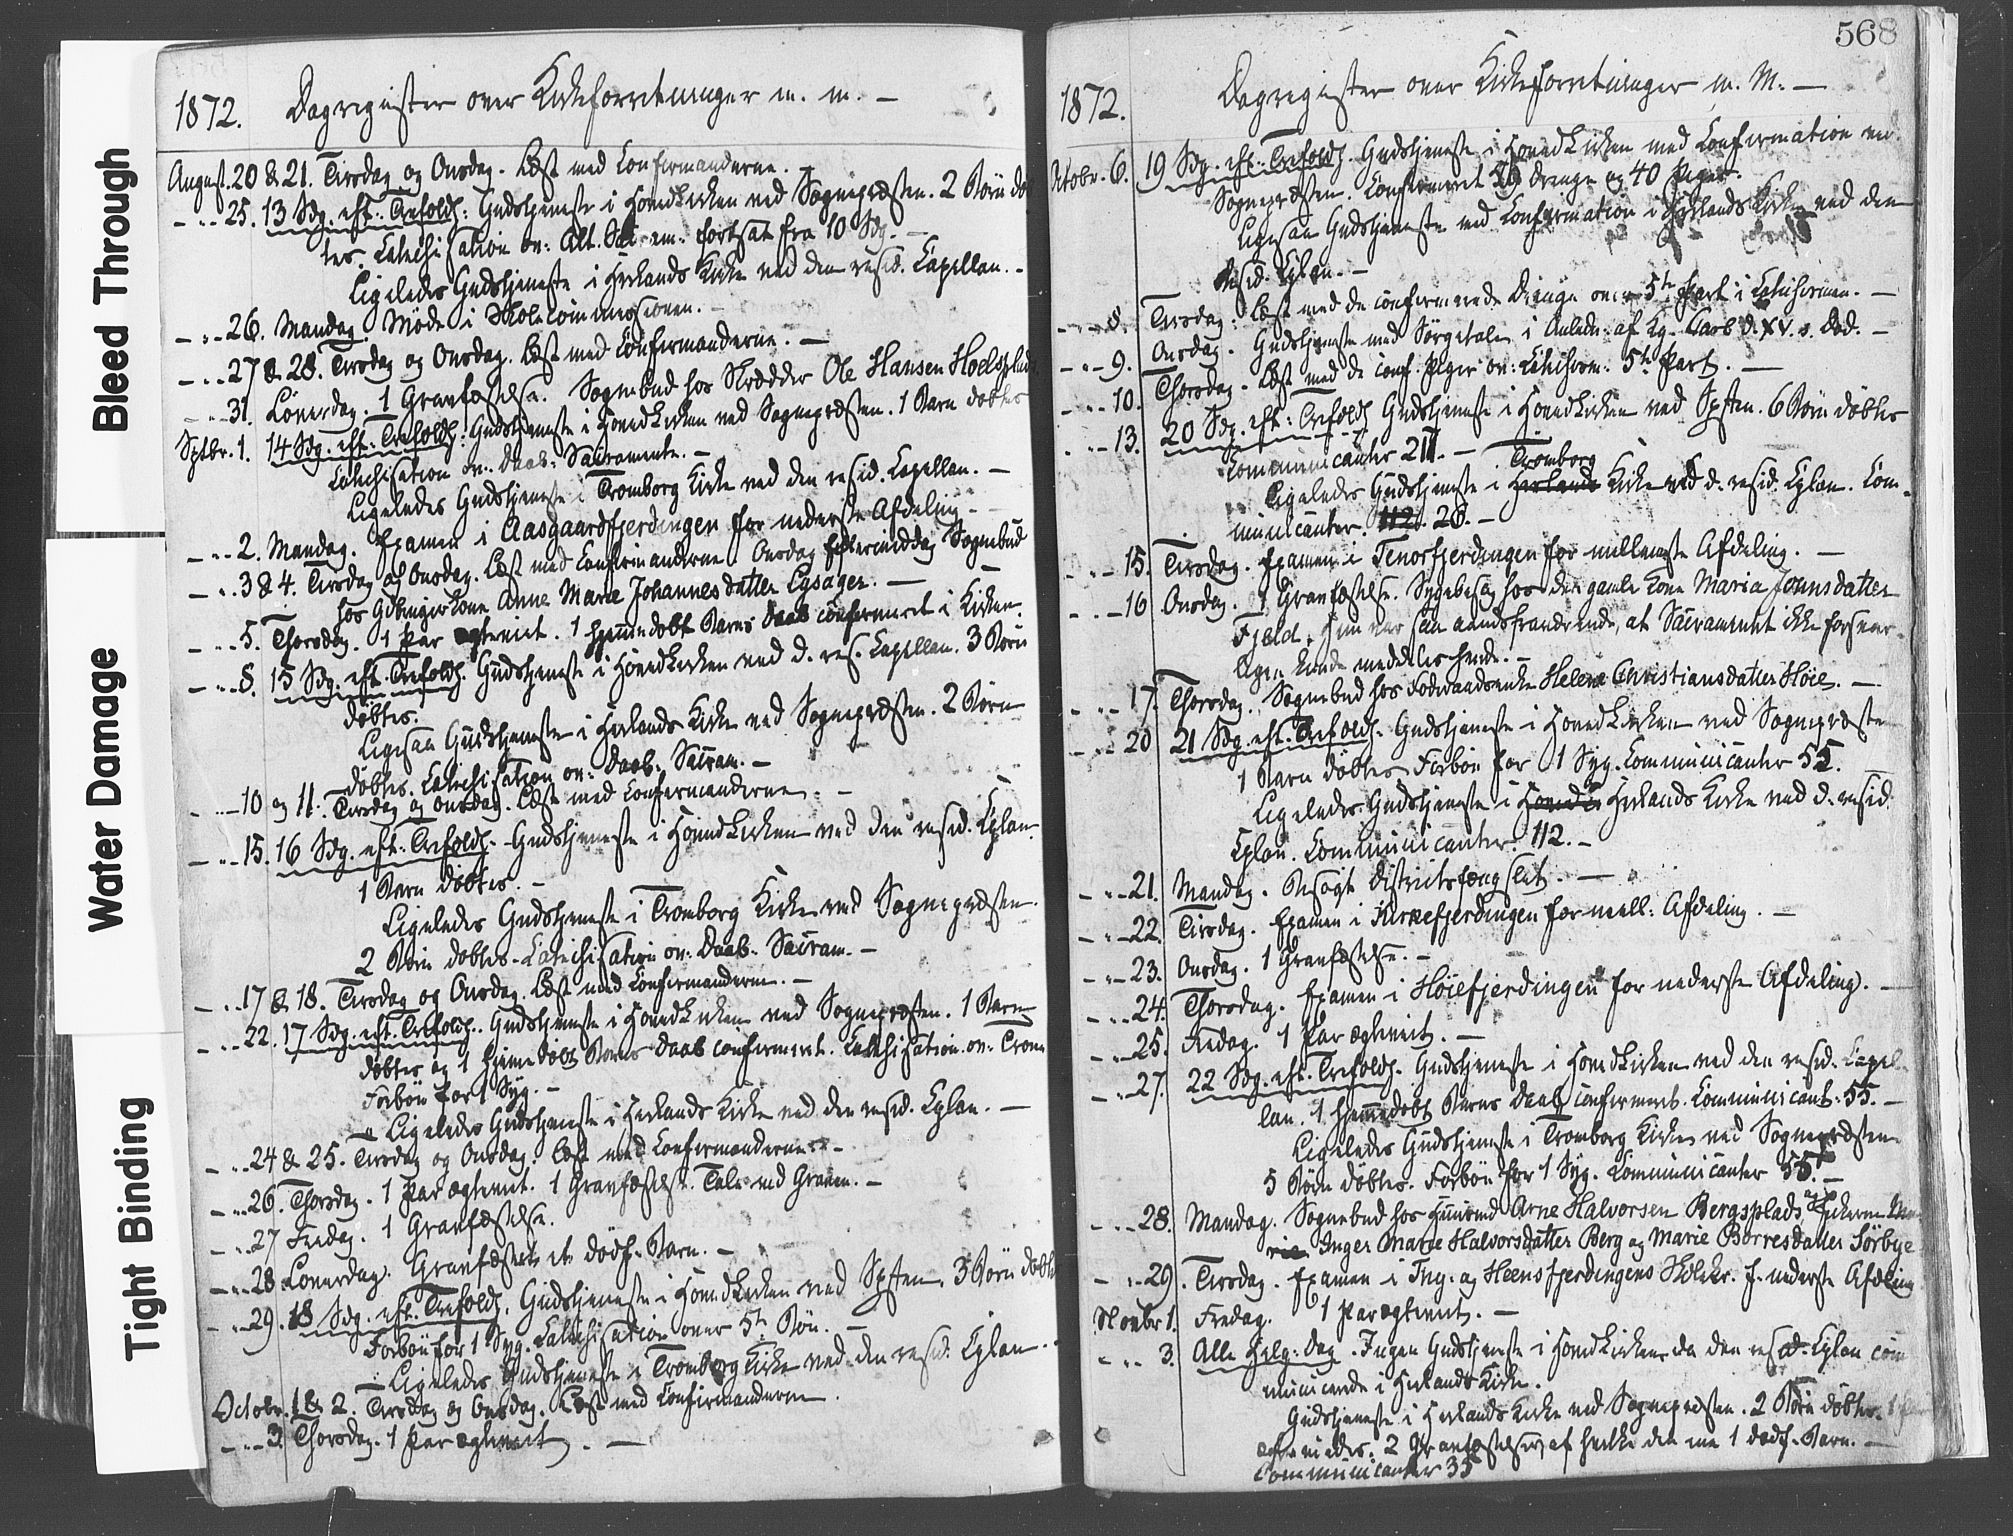 Bleed Through
Water Damage
Tight Binding
1872. Dagregister over Kirkeforretninger m. m. –
August. 20 & 21. Tirsdag og Onsdag. Læst med Confirmanderne. –
– „ – 25. 13 Sdg. eft: Trefoldh: Gudstjeneste i Hovedkirken ved Sognepræsten. 2 Børn døb
tes. Catechisation ov: Alt. Sacram: fortsat fra 10 Sdg. –
Ligeledes Gudstjeneste i Herlands Kirke ved den resid. Capellan. –
– „ – 26. Mandag. Møde i Skolecommissionen. –
– „ – 27 & 28. Tirsdag og Onsdag. Læst med Confirmanderne. –
– „ – 31. Løverdag. 1 Gravfæstelse. Sognebud hos Skrædder Ole Hansen Hoelsplads
Sptbr. 1. 14 Sdg. eft: Trefoldh: Gudstjeneste i Hovedkirken ved Sognepræsten. 1 Barn døbtes
Catechisation ov: Daab: Sacramente. –
Ligeledes Gudstjeneste i Tromborg Kirke ved den resid. Capellan. –
– „ – 2. Mandag. Examen i Aasgaardfjerdingen for nederste Afdeling. –
– „ – 3 & 4. Tirsdag og Onsdag. Læst med Confirmanderne. Onsdag Eftermiddag Sognebud
hos Gdbrugerkone Anne Marie Johannesdatter Lysager. –
– „ – 5. Thorsdag. 1 Par ægteviet. 1 hjemmedøbt Barns Daab confirmeret i Kirken.
– „ – 8. 15 Sdg. eft: Trefoldh. Gudstjeneste i Hovedkirken ved d. res. Capellan. 3 Børn
døbtes.
Ligesaa Gudstjeneste i Herlands Kirke ved Sognepræsten. 2 Børn
døbtes. Catechisation ov: Daab: Sacram. –
– „ – 10 og 11. Tirsdag og Onsdag. Læst med Confirmanderne. –
– „ – 15. 16 Sdg. eft: Trefoldh. Gudstjeneste i Hovedkirken ved den resid. Cplan.
1 Barn døbtes. –
Ligeledes Gudstjeneste i Tromborg Kirke ved Sognepræsten.
2 Børn døbtes. Catechisation ov: Daab: Sacram. –
– „ – 17 & 18. Tirsdag og Onsdag. Læst med Confirmanderne. –
– „ – 22. 17 Sdg. eft. Trefoldh. Gudstjeneste i Hovedkirken ved Sognepræsten. 1 Barn
døbtes og 1 hjemmedøbt Barns Daab confirmeret. Catechisation ov:
Forbøn for 1 Syg. –
Ligeledes Gudstjeneste i Herlands Kirke ved den resid. Cplan. –
– „ – 24 & 25. Tirsdag og Onsdag. Læst med Confirmanderne. –
– „ – 26. Thorsdag. 1 Par ægteviet. 1 Gravfæstelse. Tale ved Graven. –
– „ – 27 Fredag. 1 Gravfæstelse.
– „ – 28 Løverdag. Gravfæstet et dødf. Barn. –
– „ – 29. 18 Sdg. eft. Trefoldh. Gudstjeneste i Hovedkirken ved Spsten. 3 Børn døbtes
Forbøn for 1 Syg. Catechisation over 5te Bøn. –
Ligeledes Gudstjeneste i Tromborg Kirke ved den resid. Cplan. –
Octobr. 1 & 2. Tirsdag og Onsdag. Læst med Confirmanderne.
– „ – 3. Thorsdag. 1 Par ægteviet. –
568
1872. Dagregister over Kirkeforretninger m. M. –
Octobr. 6. 19 Sdg. eft: Trefoldh. Gudstjeneste i Hovedkirken med Confirmation ved
Sognepræsten. Confirmeret Drenge og 40 Piger.
Ligesaa Gudstjeneste med Confirmation i Herlands Kirke ved den
resid. Cplan. –
– „ – 8. Tirsdag: Læst med de confirmerede Drenge over 5te Part i Catechismen. –
– „ – 9. Onsdag. Gudstjeneste med Sørgetale i Anledn: af Kg. Carl d. XV.s Død. –
– „ – 10. Thorsdag. Læst med de conf. Piger ov: Catechism: 5te Part. –
– „ – 13. 20 Sdg. eft: Trefoldh Gudstjeneste i Hovedkirken ved Spsten. 6 Børn døbtes
Communicanter 217. –
Tromborg
Ligeledes Gudstjeneste i Herlands Kirke ved d. resid. Cplan. Com-
municanter. 112. 26. –
– „ – 15. Tirsdag. Examen i Tenorfjerdingen for mellemste Afdeling. –
– „ – 16 Onsdag. 1 Gravfæstelse. Sygebesøg hos den gamle Kone Maria Jonnsdatter
Fjeld. Hun var saa aandsfraværende, at Sacramentet ikke forsvar-
ligen kunde meddeles hende. –
– „ – 17. Thorsdag. Sognebud hos Føderaadsenke Helene Christiansdatter Höie. –
– „ – 20 21 Sdg. eft. Trefoldh. Gudstjeneste i Hovedkirken ved Sognepræsten
1 Barn døbtes. Forbøn for 1 Syg. Communicanter 55.
Ligeledes Gudstjeneste i Herlands Kirke ved d. resid.
Cplan. Communicanter 112. –
– „ – 21. Mandag. Besøgt Districtsfængslet. –
– „ – 22. Tirsdag. Examen i Kirkefjerdingen for mell: Afdeling. –
– „ – 23. Onsdag. 1 Gravfæstelse. –
– „ – 24. Thorsdag. Examen i Höiefjerdingen for nederste Afdeling. –
– „ – 25. Fredag. 1 Par ægteviet. –
– „ – 27. 22 Sdg. eft. Trefoldh. Gudstjeneste i Hovedkirken ved den resid. Capel-
lan. 1 hjemmedøbt Barns Daab confirmeret. Communicant: 55. –
Ligeledes Gudstjeneste i Tromborg Kirke ved Sognepræsten
5 Børn døbtes. Forbøn for 1 Syg. Communicanter 55. –
– „ – 28. Mandag. Sognebud hos Huusmd Arne Halvorsen Bergsplads,
Inger Marie Halvorsdatter Berg og Marie Börresdatter Sörbye
– „ – 29. Tirsdag. Examen i Ing. og Heensfjerdingens Skolekr. f. nederste Afdeling
Novbr 1. Fredag. 1 Par ægteviet. –
– „ – 3. Alle Helg: Dag. Ingen Gudstjeneste i Hovedkirken da den resid. Cplan com
municerede i Herlands Kirke.
Gudstjeneste i Herlands Kirke ved Sognepræsten. 2 Børn døbtes. 1 Par
ægteviedes. 2 Gravfæstelser, af hvilke den ene 1 dødf. Barn. –
Communicanter 35